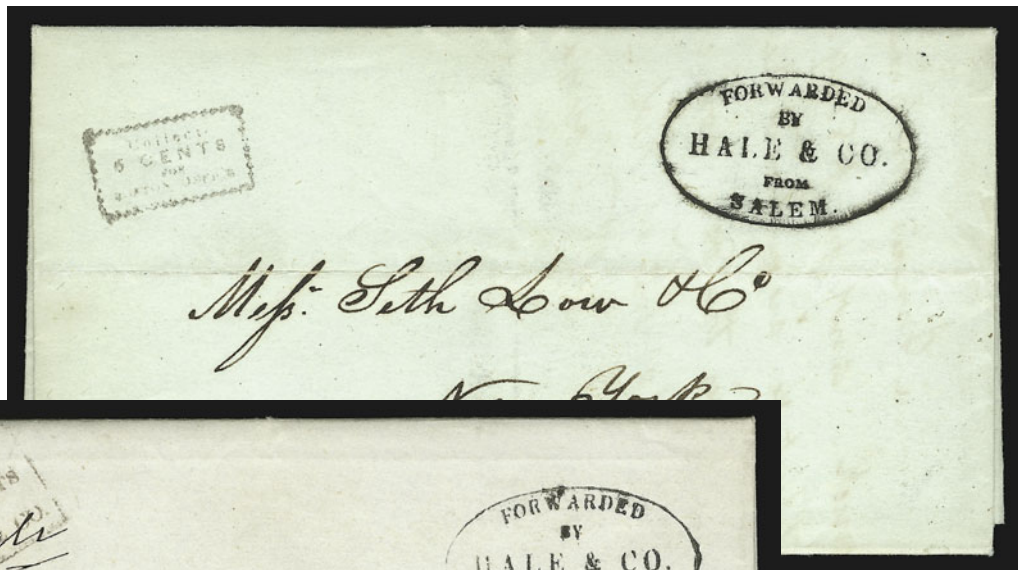 Collect
5 CENTS
FOR
BOSTON OFFICE
FORWARDED
BY
HALE & CO.
FROM
SALEM.
Messrs. Seth Low & Co
New York
FORWARDED
BY
HALE & CO.